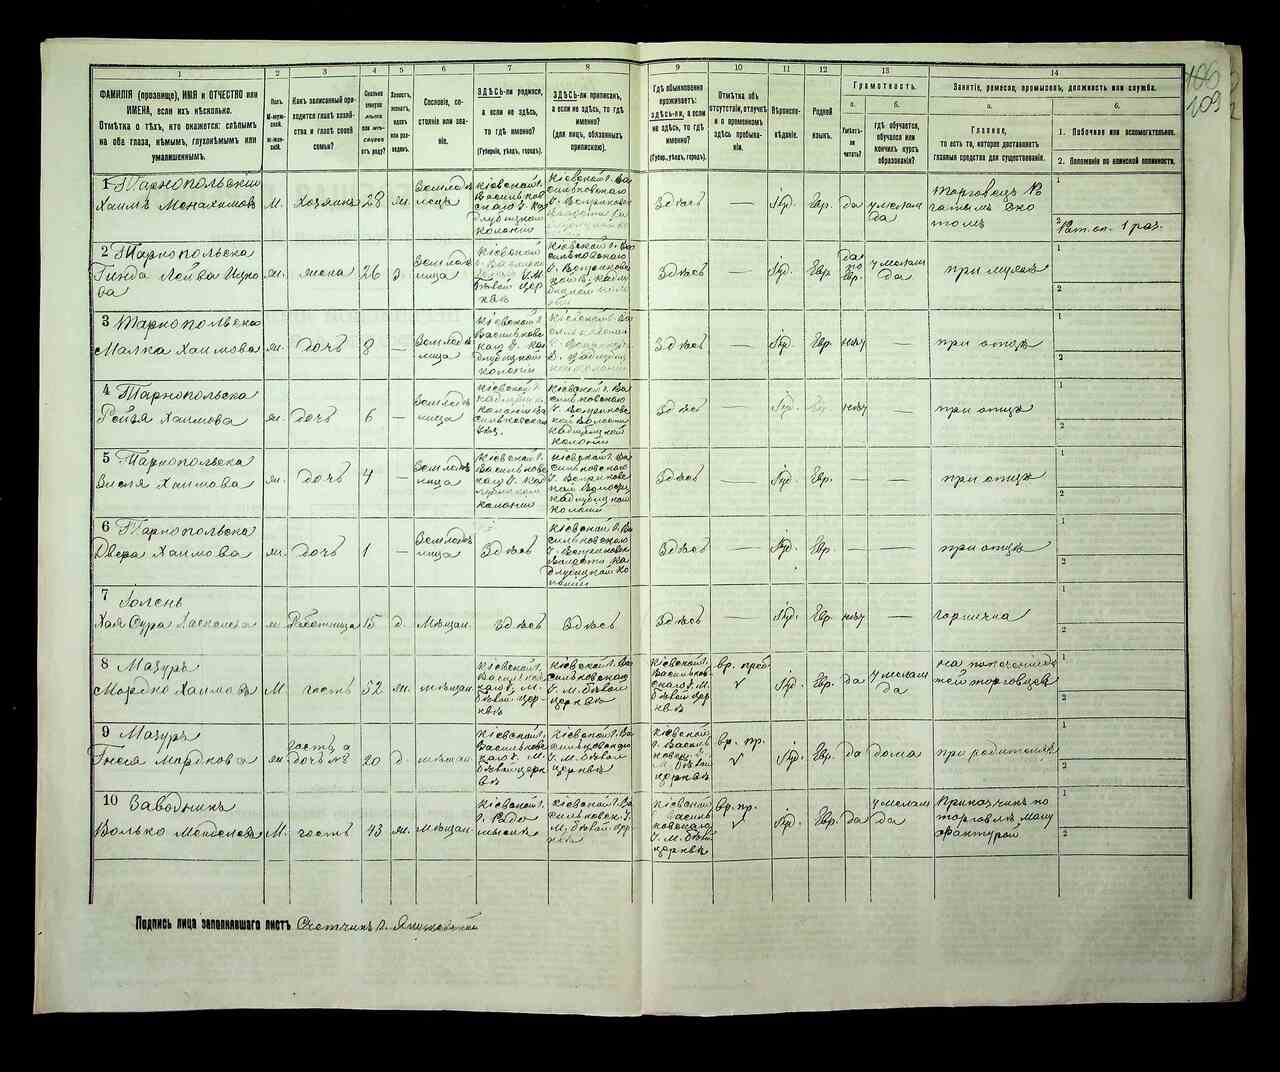 106
109
1
2
3
4
5
6
7
8
9
10
11
12
13
14
ФАМИЛІЯ (прозвище), ИМЯ и ОТЧЕСТВО или
ИМЕНА, если ихъ нѣсколько.
Отмѣтка о тѣхъ, кто окажется: слѣпымъ
на оба глаза, нѣмымъ, глухонѣмымъ или
умалишеннымъ.
Полъ
М-мужской.
Ж-женской.
Какъ записанный при-
ходится главѣ хозяй-
ства и главѣ своей
семьи?
Сколько
минуло
лѣтъ
или мѣ-
сяцевъ
отъ роду?
Холостъ,
женатъ,
вдовъ
или раз-
веденъ.
Сословіе, со-
стояніе или зва-
ніе.
ЗДѢСЬ-ли родился,
а если не здѣсь,
то гдѣ именно?
(Губернія, уѣздъ, городъ).
ЗДѢСЬ-ли приписанъ,
а если не здѣсь, то гдѣ
именно?
(для лицъ, обязанныхъ
припискою).
Гдѣ обыкновенно
проживаетъ:
здѣсь-ли, а если
не здѣсь, то гдѣ
именно?
(Губер., уѣздъ, городъ).
Отмѣтка объ
отсутствіи, отлучкѣ
и о временномъ
здѣсь пребыва-
ніи.
Вѣроиспо-
вѣданіе.
Родной
языкъ.
Грамотность.
а.
б.
Умѣетъ-
ли
читать?
гдѣ обучается,
обучался или
кончилъ курсъ
образованія?
Занятіе, ремесло, промыселъ, должность или служба.
а.
б.
Главное,
то есть то, которое доставляетъ
главныя средства для существованія.
1. Побочное или вспомогательное.
2. Положеніе по воинской повинности.
1 Тарнопольскій
Хаимъ Менахимовъ
М.
Хозяинъ
28
ж.
Земледѣ
лецъ
Кіевской г.
Васильков
скаго у. Ка
длубицкой
колоніи
Кіевской г. Ва
сильковскаго
Здѣсь
—
Іуд.
Евр.
да
у мелам
да
торговецъ ро
гатымъ ско
томъ
1
2 Рат. оп. 1 раз.
2 Тарнопольска
Гинда Лейва Ицко
ва
ж.
жена
26
з
Земледѣ
лица
Кіевской г.
Бѣлой цер
квѣ
Кіевской г. Ва
сильковскаго
Здѣсь
—
Іуд.
Евр.
да
по
Евр.
у мелам
да
при мужѣ
1
2
3 Тарнопольска
Малка Хаимова
ж.
дочь
8
—
Земледѣ
лица
Кіевской г.
Васильковс
каго у. Ка
длубицкой
колоніи
Кіевской г. Ва
Здѣсь
—
Іуд.
Евр.
нѣту
—
при отцѣ
1
2
4 Тарнопольска
Рейзя Хаимова
ж.
дочь
6
—
Земледѣ
лица
Кіевской г.
колоніи Ва
сильковскаго
уѣз.
Кіевской г. Ва
сильковскаго
кадлубицкой
колоніи
Здѣсь
—
Іуд.
нѣту
—
при отцѣ
1
2
5 Тарнопольска
Зисля Хаимова
ж.
дочь
4
—
Земледѣ
лица
Кіевской г.
Васильковс
каго у. Кад
лубицкой
колоніи
Кіевской г. Ва
сильковскаго
кадлубицкой
колоніи
Здѣсь
—
Іуд.
Евр.
—
—
при отцѣ
1
2
6 Тарнопольска
Двера Хаимова
ж.
дочь
1
—
Земледѣ
лица
Здѣсь
Кіевской г. Ва
сильковскаго
Волости Ка
длубицкой ко
лоніи
Здѣсь
—
Іуд.
Евр.
—
—
при отцѣ
1
2
7 Голень
Хая Сура
ж
Работница
15
д
Мѣщан.
Здѣсь
Здѣсь
Здѣсь
—
Іуд.
Евр.
нѣту
—
горничка
1
2
8 Мазуръ
Мордко Хаимовъ
М
гость
52
ж.
мѣщан.
Кіевской г.
Васильков
скаго у. М.
бѣлой цер
квѣ
Кіевской г. Ва
сильковскаго
у. М. бѣлой
церквѣ
Кіевской г.
Васильков
скаго у. М.
бѣлой цер
квѣ
вр. преб
Іуд.
Евр.
да
у мелам
да
на попеченіи дѣ
тей торговцевъ
1
2
9 Мазуръ
Гнеся Мордкова
ж
гость а
дочь №8
20
д
мѣщан.
Кіевской г.
Васильковс
каго у. М.
бѣлой церк
вѣ
Кіевской г. Ва
сильковскаго
у. М. бѣлой
церквѣ
Кіевской
г. Василь
ковск. у.
М. бѣлой
церквѣ
вр. пр.
Іуд.
Евр.
да
дома
при родителяхъ
1
2
10 Заводникъ
Волько Менделевъ
М.
гость
43
ж.
мѣщан.
Кіевской г.
г. Радо
мыслѣ
Кіевской г. Ва
сильковск. у.
М. бѣлой цер
квѣ
Кіевской
г. Василь
ковскаго
у. М. бѣлой
церквѣ
вр. пр.
Іуд.
Евр.
да
у мелам
да
Приказчикъ по
торговлѣ ману
фактурой
1
2
Подпись лица заполнявшаго листъ Счетчикъ